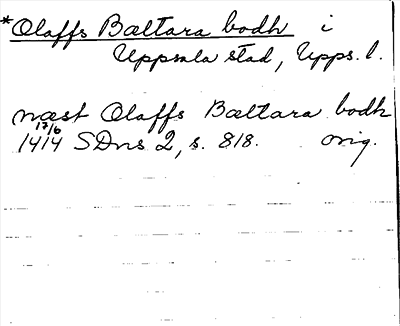 *Olaffs Bæltara bodh i
Uppsala stad, Upps. l.
næst Olaffs Bæltara bodh
17/6
1414 SDns 2, s. 818. orig.